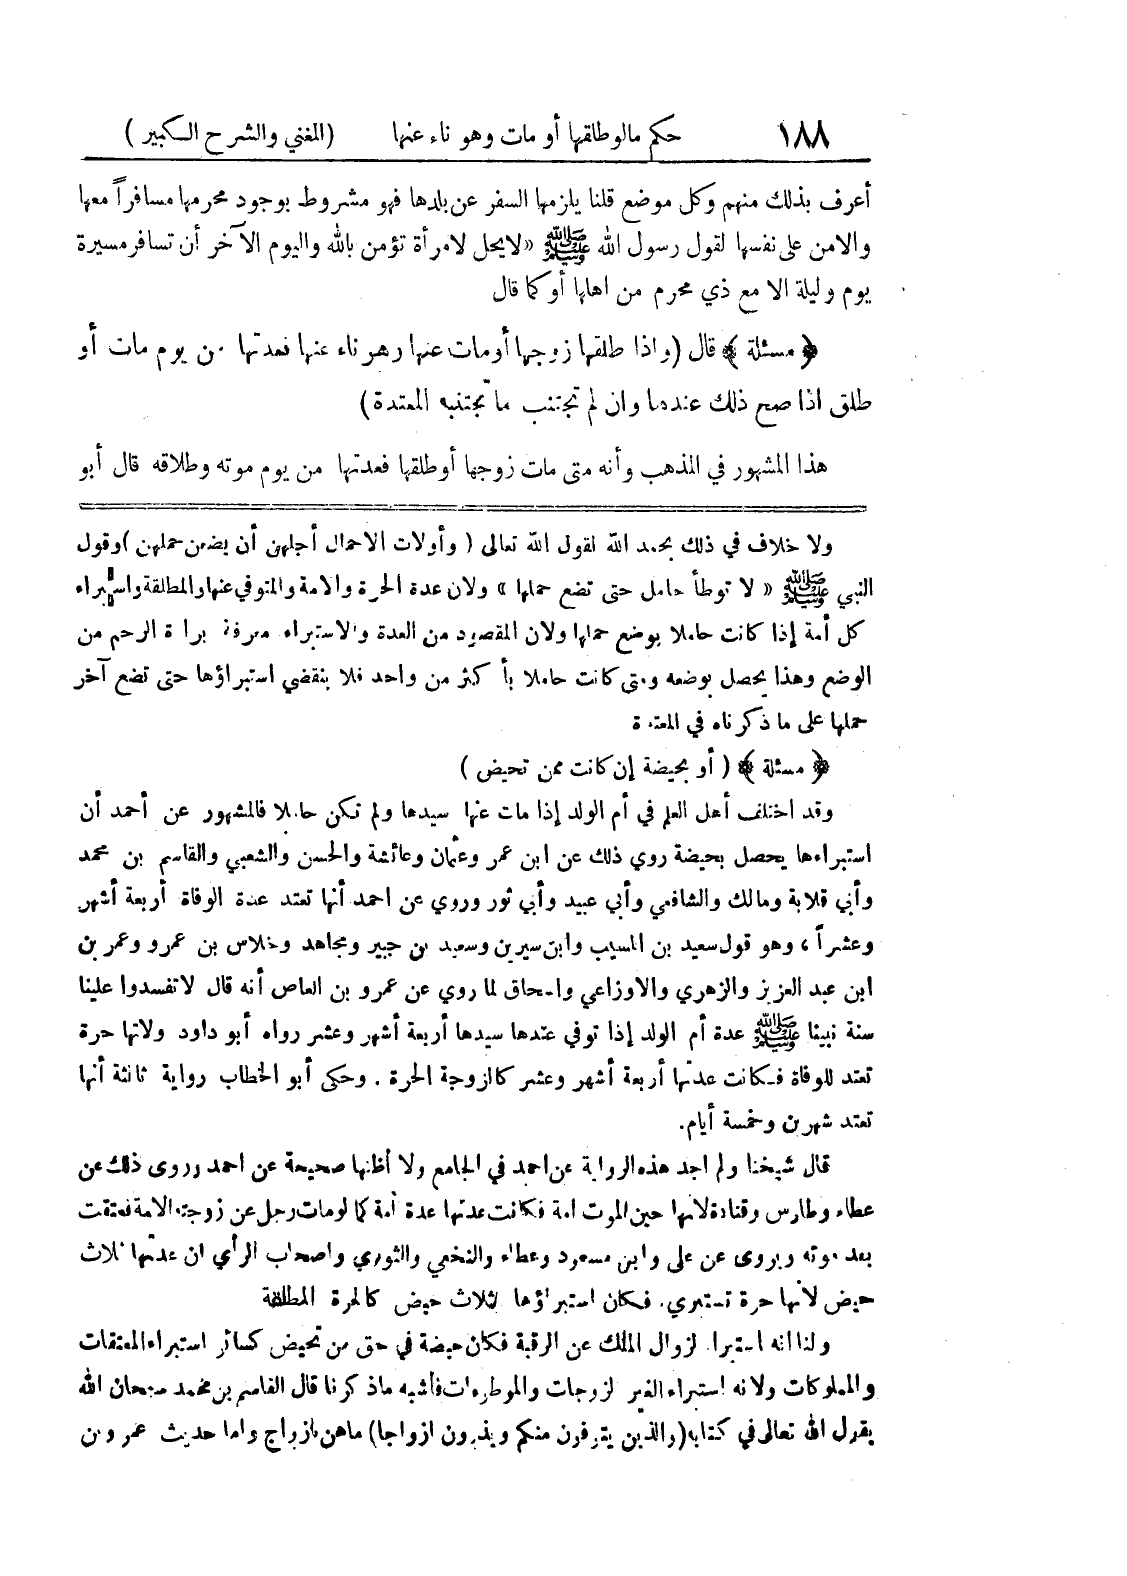 ١٨٨ حكم مالو طلقها أو مات وهو ناء عنها (المغني والشرح الكبير)
أعرف بذلك منهم وكل موضع قلنا يلزمها السفر عن بلدها فهو مشروط بوجود محرمها مسافراً معها
والامن على نفسها لقول رسول الله ﷺ «لا يحل لامرأة تؤمن بالله واليوم الآخر أن تسافر مسيرة
يوم وليلة الا مع ذي محرم من اهلها أو كما قال
﴿ مسئلة ﴾ قال (واذا طلقها زوجها أو مات عنها وهو ناء عنها فعدتها من يوم مات أو
طلق اذا صح ذلك عندها وان لم تجتنب ما تجتنبه المعتدة)
هذا المشهور في المذهب وأنه متى مات زوجها أو طلقها فعدتها من يوم موته وطلاقه قال أبو
ولا خلاف في ذلك بحمد الله لقول الله تعالى ( وأولات الاحمال أجلهن أن يضعن حملهن ) وقول
النبي ﷺ « لا توطأ حامل حتى تضع حملها » ولان عدة الحرة والامة والمتوفي عنها والمطلقة واستبراء
كل أمة إذا كانت حاملا بوضع حملها ولان المقصود من العدة والاستبراء معرفة براءة الرحم من
الوضع وهذا يحصل بوضعه ومتى كانت حاملا بأكثر من واحد فلا ينقضي استبراؤها حتى تضع آخر
حملها على ما ذكرناه في المعتدة
﴿ مسئلة ﴾ ( أو بحيضة إن كانت ممن تحيض )
وقد اختلف أهل العلم في أم الولد إذا مات عنها سيدها ولم تكن حاملا فالمشهور عن أحمد أن
استبراءها يحصل بحيضة روي ذلك عن ابن عمر وعثمان وعائشة والحسن والشعبي والقاسم بن محمد
وأبي قلابة ومالك والشافعي وأبي عبيد وأبي ثور وروي عن احمد أنها تعتد عدة الوفاة أربعة أشهر
وعشراً ، وهو قول سعيد بن المسيب وابن سيرين وسعيد بن جبير ومجاهد وخلاس بن عمرو وعمر بن
ابن عبد العزيز والزهري والاوزاعي واسحاق لما روي عن عمرو بن العاص أنه قال لا تفسدوا علينا
سنة نبينا ﷺ عدة أم الولد إذا توفي عندها سيدها أربعة أشهر وعشر رواه أبو داود ولانها حرة
تعتد للوفاة فكانت عدتها أربعة أشهر وعشر كالزوجة الحرة . وحكى أبو الخطاب رواية ثالثة أنها
تعتد شهرين وخمسة أيام.
قال شيخنا ولم اجد هذه الرواية عن احمد في الجامع ولا أظنها صحيحة عن احمد وروى ذلك عن
عطاء وطاوس وقتادة لانها حين الموت امة فكانت عدتها عدة أمة كما لو مات رجل عن زوجته الامة فعتقت
بعد موته ويروى عن علي وابن مسعود وعطاء والنخعي والثوري واصحاب الرأي ان عدتها ثلاث
حيض لأنها حرة تستبري. فكان استبراؤها بثلاث حيض كالحرة المطلقة
ولنا انه استبراء لزوال الملك عن الرقبة فكان حيضة في حق من تحيض كسائر استبراء المعتقات
والمملوكات ولانه استبراء لغير لزوجات والموطوءات فأشبه ماذكرنا قال القاسم بن محمد سبحان الله
يقول الله تعالى في كتابه (والذين يتوفون منكم ويذرون ازواجا) ماهن بازواج واما حديث عمرو بن